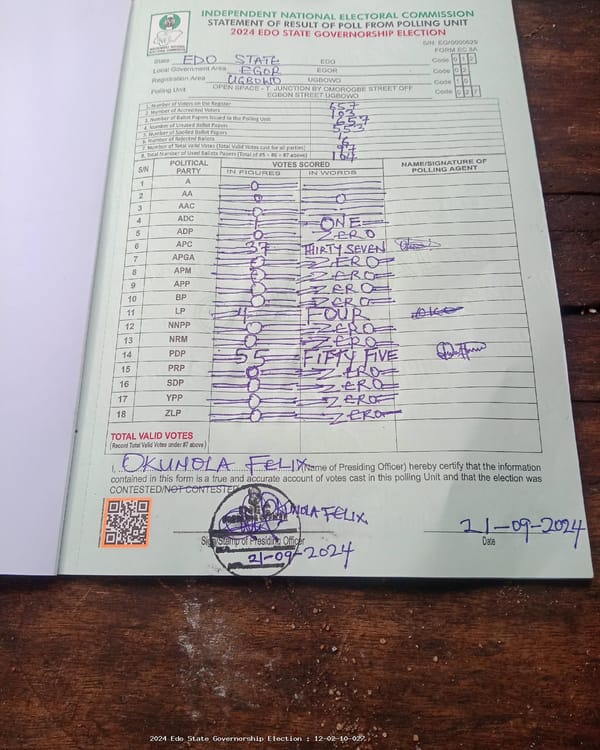 INDEPENDENT NATIONAL ELECTORAL COMMISSION
STATEMENT OF RESULT OF POLL FROM POLLING UNIT
2024 EDO STATE GOVERNORSHIP ELECTION
S/N: EG/0000629
FORM EC 8A
State EDO STATE EDO Code 012
Local Government Area EGOR EGOR Code 02
Registration Area UGBOWO UGBOWO Code 10
Polling Unit OPEN SPACE - T. JUNCTION BY OMOROGBE STREET OFF EGBON STREET UGBOWO Code 027
1. Number of Voters on the Register 657
2. Number of Accredited Voters
3. Number of Ballot Papers Issued to the Polling Unit 657
4. Number of Unused Ballot Papers 553
5. Number of Spoiled Ballot Papers
6. Number of Rejected Ballots
7. Number of Total Valid Votes (Total Valid Votes cast for all parties) 97
8. Total Number of Used Ballots Papers (Total of #5 + #6 + #7 above) 104
S/N POLITICAL PARTY VOTES SCORED NAME/SIGNATURE OF POLLING AGENT
IN FIGURES IN WORDS
1 A 0
2 AA 0 0
3 AAC 0
4 ADC 1 ONE
5 ADP 0 ZERO
6 APC 37 THIRTY SEVEN
7 APGA 0 ZERO
8 APM 0 ZERO
9 APP 0 ZERO
10 BP 0 ZERO
11 LP 4 FOUR
12 NNPP 0 ZERO
13 NRM 0 ZERO
14 PDP 55 FIFTY FIVE
15 PRP 0 ZERO
16 SDP 0 ZERO
17 YPP 0 ZERO
18 ZLP 0 ZERO
TOTAL VALID VOTES
(Record Total Valid Votes under #7 above)
I, OKUNOLA FELIX (Name of Presiding Officer) hereby certify that the information
contained in this form is a true and accurate account of votes cast in this polling Unit and that the election was
CONTESTED/NOT CONTESTED
OKUNOLA FELIX
21-09-2024
Sign/Stamp of Presiding Officer
Date
21-09-2024
2024 Edo State Governorship Election : 12-02-10-027